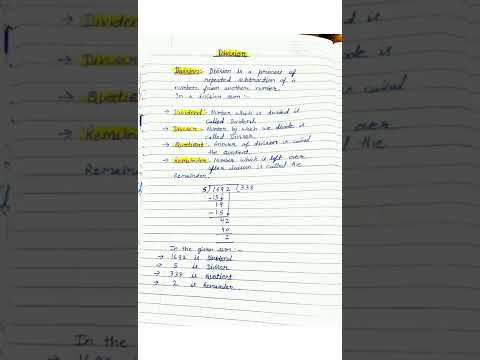 Division
Division:- Division is a process of
repeated subtraction of a
number from another number.
In a division sum :-
→ Dividend:- Number which is divided is
called Dividend.
→ Divisor:- Number by which we divide is
called Divisor.
→ Quotient:- Answer of division is called
the Quotient.
→ Remainder:- Number which is left over
after division is called the
Remainder.
5) 1692 (338
-15
19
-15
42
40
2
In the given sum :-
→ 1692 is Dividend
→ 5 is Divisor
→ 338 is Quotient
→ 2 is Remainder.